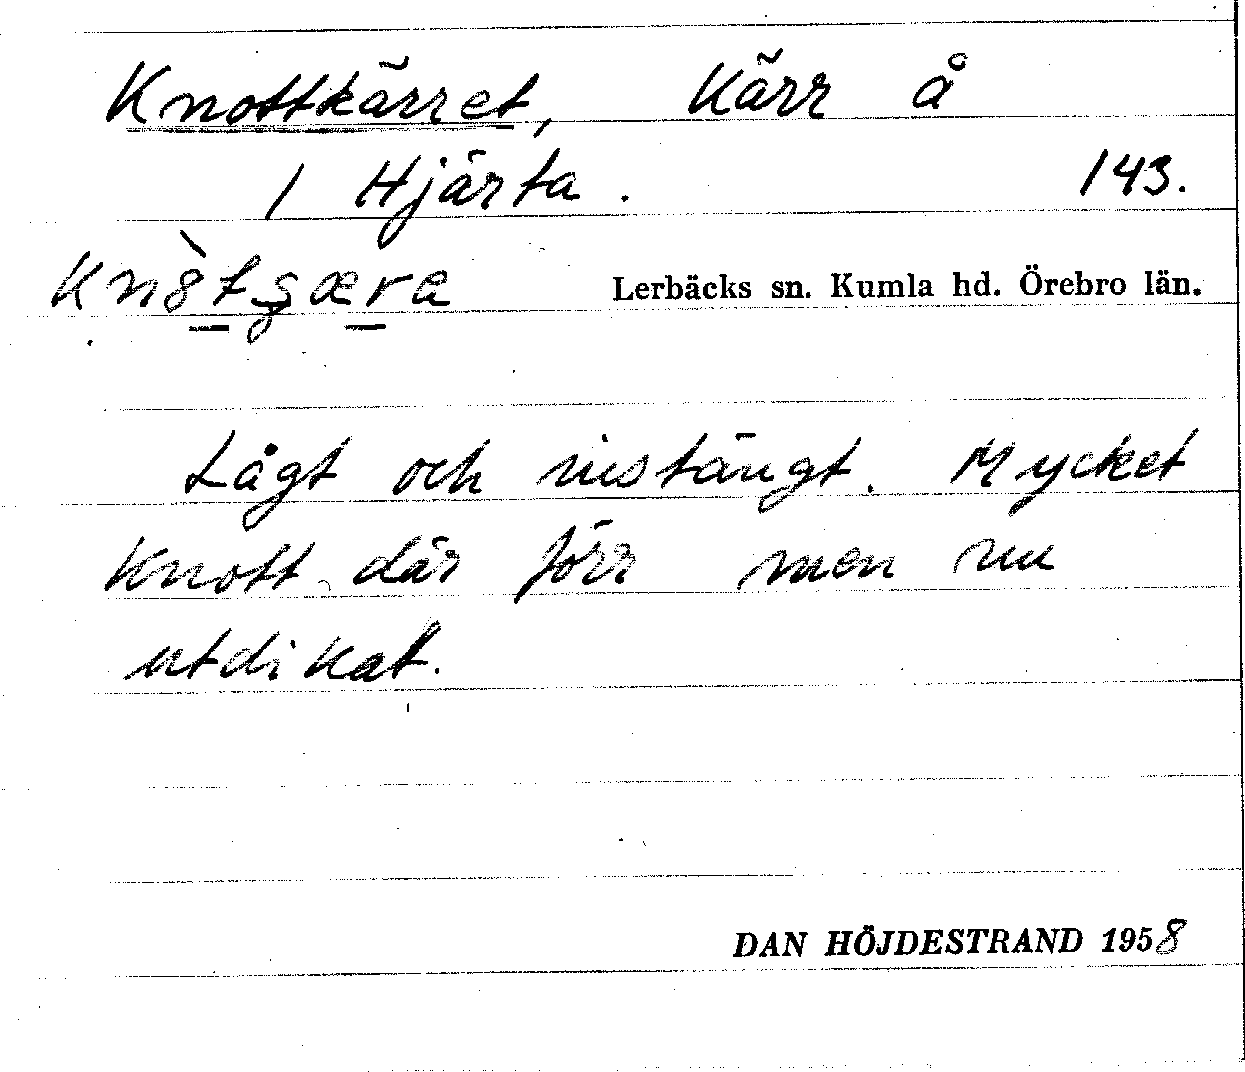 Knottkärret, Kärr å
1 Hjärta. 143.
Lerbäcks sn. Kumla hd. Örebro län.
Lågt och instängt. Mycket
Knott där förr men nu
utdikat.
DAN HÖJDESTRAND 1958